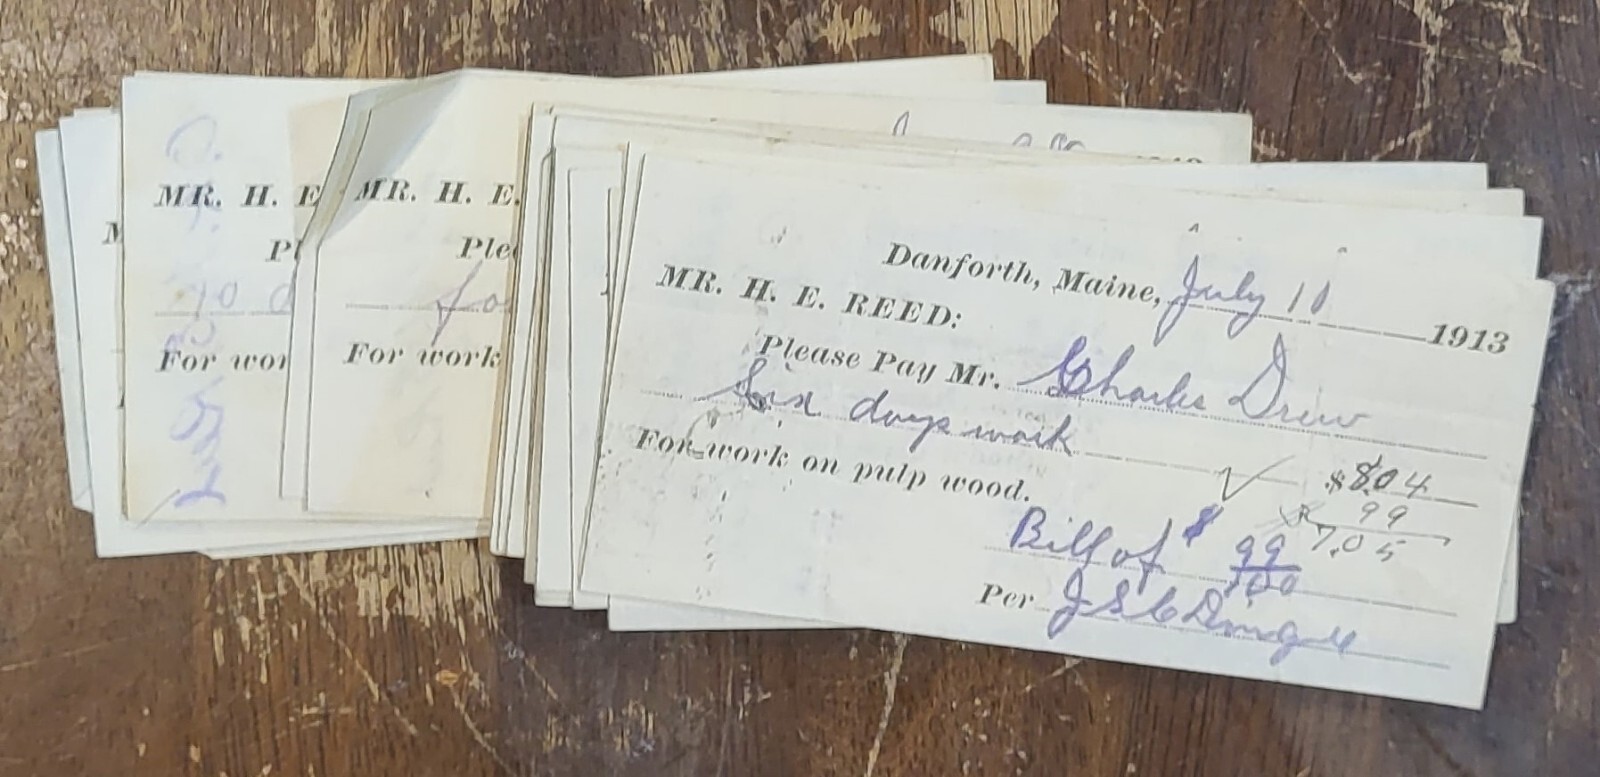 MR. H. E
Pl
For wor
MR. H. E.
Plea
fo
For work
Danforth, Maine, July 11 1913
MR. H. E. REED:
Please Pay Mr. Charles Drew
Six days work
For work on pulp wood. $8.04
99
7.05
Bill of $ 99/100
Per J S C Dingee